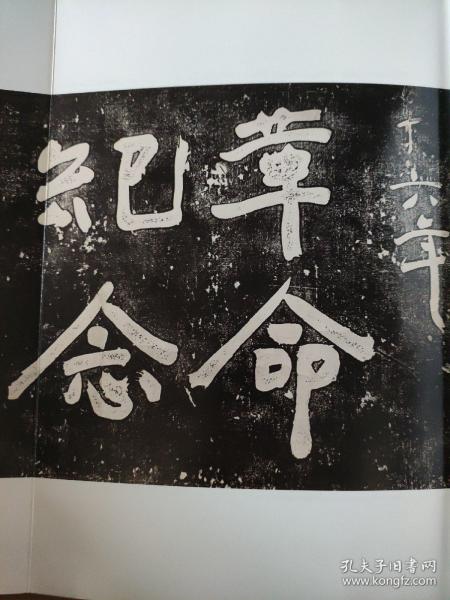 十六年
革命
紀念
孔夫子旧书网
www.kongfz.com